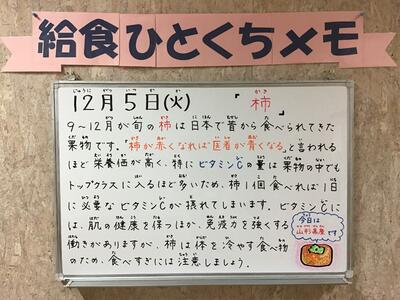 給食ひとくちメモ
12月5日(火) 「柿」
9～12月が旬の柿は日本で昔から食べられてきた
果物です。"柿が赤くなれば医者が青くなる"と言われる
ほど栄養価が高く、特にビタミンCの量は果物の中でも
トップクラスに入るほど多いため、柿1個食べれば1日
に必要なビタミンCが摂れてしまいます。ビタミンCに
は、肌の健康を保つほか、免疫力を強くする
働きがありますが、柿は体を冷やす食べ物
のため、食べすぎには注意しましょう。
今日は
山形基屋
です